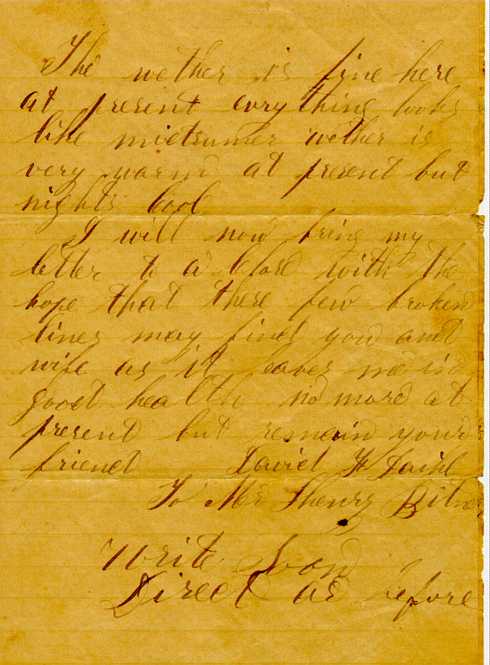 The wether is fine here
at present evrything looks
like midsumer wether is
very warm at present but
nights cool
I will now bring my
letter to a close with the
hope that these few broken
lines may find you and
wife as it leaves me in
good health no more at
present but remain yours
friend David
To Mr
Write Soon
Direct as before